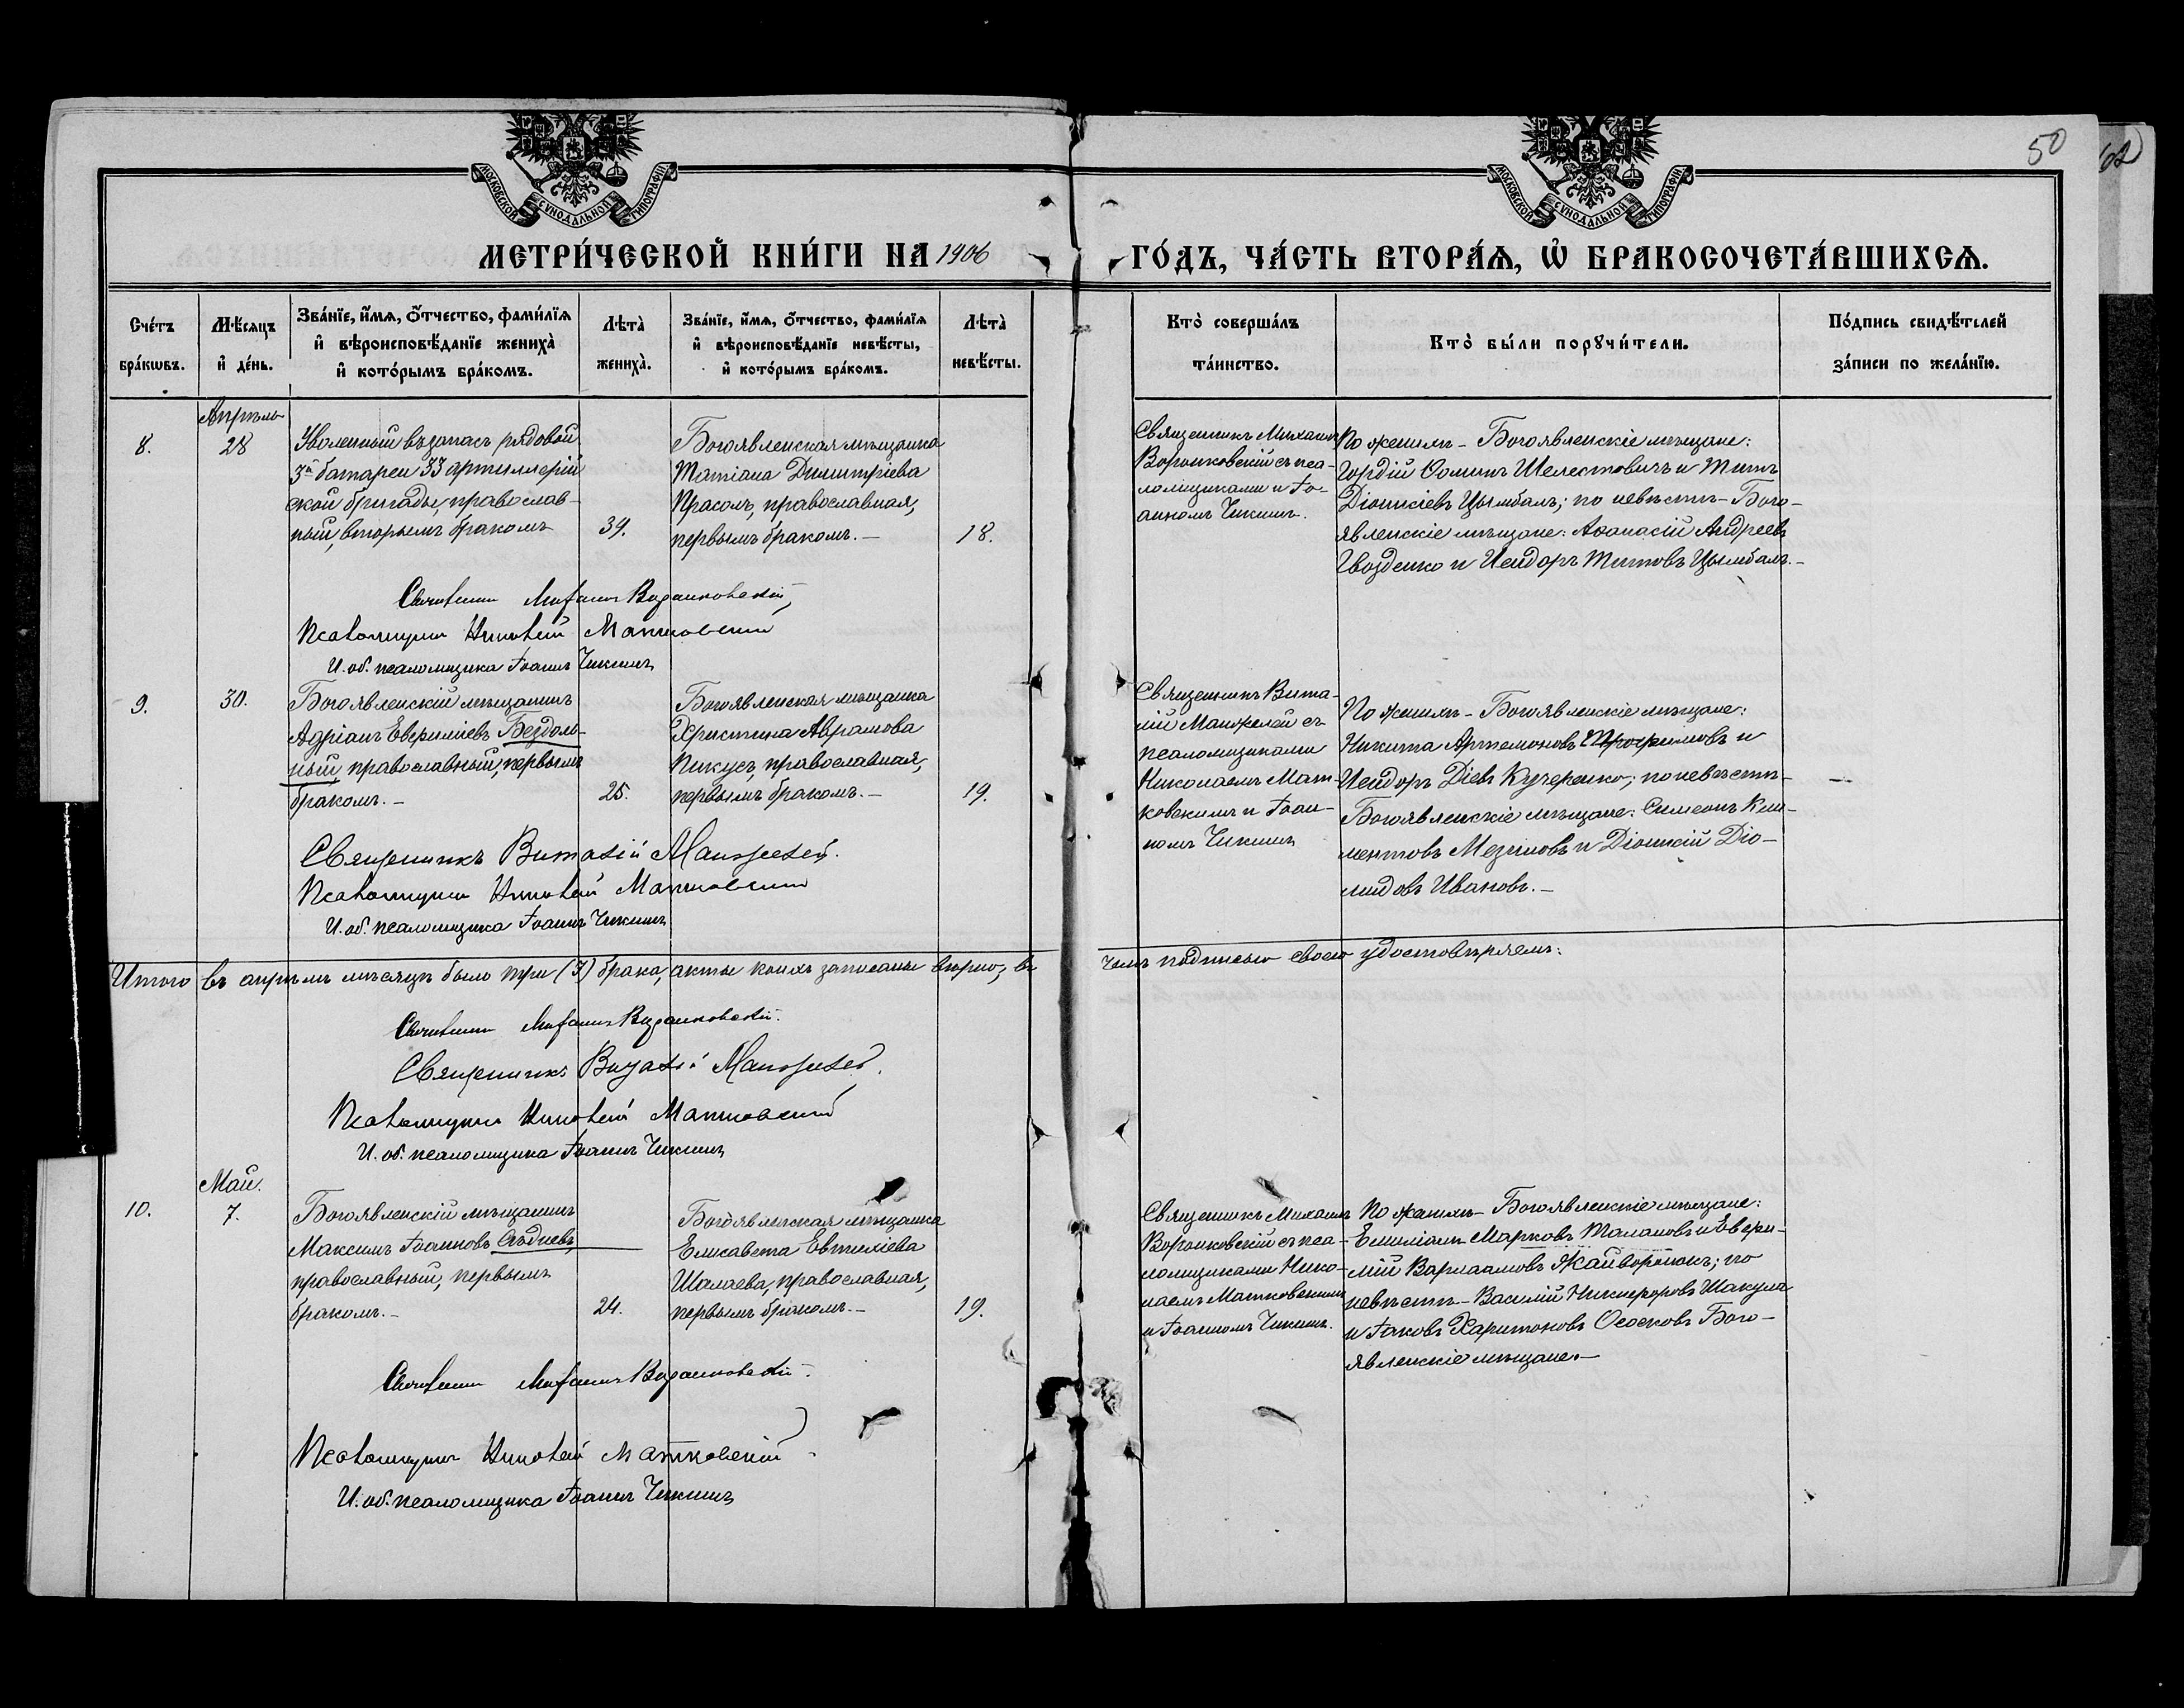 50
МОСКОВСКОЙ СУНОДАЛЬНОЙ ТИПОГРАФІИ
МОСКОВСКОЙ СУНОДАЛЬНОЙ ТИПОГРАФІИ
МЕТРИ́ЧЕСКОЙ КНИ́ГИ НА 1906 ГО́ДЪ, ЧА́СТЬ ВТОРА́Ѧ, Ѡ҆ БРАКОСОЧЕТА́ВШИХСѦ.
Сче́тъ
бра́кѡвъ.
Мѣ́сяцъ
и҆ де́нь.
Зва́нїе, и҆́мя, о҆́тчество, фами́лїя
и҆ вѣроисповѣ́данїе жениха̀
и҆ кото́рымъ бра́комъ.
Лѣта̀
жениха̀.
Зва́нїе, и҆́мя, о҆́тчество, фами́лїя
и҆ вѣроисповѣ́данїе невѣ́сты,
и҆ кото́рымъ бра́комъ.
Лѣта̀
невѣ́сты.
Кто̀ соверша́лъ
та́инство.
Кто̀ бы́ли порꙋчи́тели.
По́дпись свидѣ́телей
за́писи по жела́нїю.
Апрѣль
8.
28
Уволенный въ запасъ рядовой
3й батареи 33 артиллерій
ской бригады, православ-
ный, вторымъ бракомъ
39.
Богоявленская мѣщанка
Татіана Димитріева
Прасолъ, православная,
первымъ бракомъ.-
18.
Священникъ Михаилъ
Воронковскій съ пса-
ломщиками и Іо-
анномъ Чикинъ.
По женихѣ - Богоявленскіе мѣщане:
Гордій Ѳоминъ Шелестовичъ и Титъ
Діонисіевъ Цымбалъ; по невѣстѣ - Бого-
явленскіе мѣщане: Аѳанасій Андреевъ
Гвозденко и Исидоръ Титовъ Цымбалъ.-
Священникъ Михаилъ Воронковскій
Псаломщикъ Николай Матковскій
И. об. псаломщика Іоаннъ Чикинъ
9.
30.
Богоявленскій мѣщанинъ
Адріанъ Евфиміевъ Бездоль-
ный, православный, первымъ
бракомъ.-
25.
Богоявленская мѣщанка
Христина Аврамова
Пикусъ, православная,
первымъ бракомъ.-
19.
Священникъ Вита-
лій Манжелей съ
псаломщиками
Николаемъ Мат-
ковскимъ и Іоан-
номъ Чикинъ
По женихѣ - Богоявленскіе мѣщане:
Никита Артемоновъ Трофимовъ и
Исидоръ Діевъ Кучеренко; по невѣстѣ-
Богоявленскіе мѣщане: Симеонъ Кли-
ментовъ Мезиновъ и Діонисій Діо-
мидовъ Ивановъ.-
Священникъ Виталій Манжелей.
Псаломщикъ Николай Матковскій
И. об. псаломщика Іоаннъ Чикинъ
Итого въ апрѣлѣ мѣсяцѣ было три (3) брака, акты коихъ записаны вѣрно, въ чемъ подписью своею удостовѣряемъ:
Священникъ Михаилъ Воронковскій.
Священникъ Виталій Манжелей.
Псаломщикъ Николай Матковскій
И. об. псаломщика Іоаннъ Чикинъ
Май.
10.
7.
Богоявленскій мѣщанинъ
Максимъ Іоанновъ Слѣдневъ,
православный, первымъ
бракомъ.-
24.
Богоявленская мѣщанка
Елисавета Евтихіева
Шалаева, православная,
первымъ бракомъ.-
19.
Священникъ Михаилъ
Воронковскій съ пса-
ломщиками Нико-
лаемъ Матковскимъ
и Іоанномъ Чикинъ.
По женихѣ - Богоявленскіе мѣщане:
Емиліанъ Марковъ Талановъ и Евфи-
мій Варлаамовъ Жайворонокъ; по
невѣстѣ - Василій Никифоровъ Шакула
и Іаковъ Харитоновъ Ососковъ Бого-
явленскіе мѣщане.-
Священникъ Михаилъ Воронковскій.
Псаломщикъ Николай Матковскій.
И. об. псаломщика Іоаннъ Чикинъ